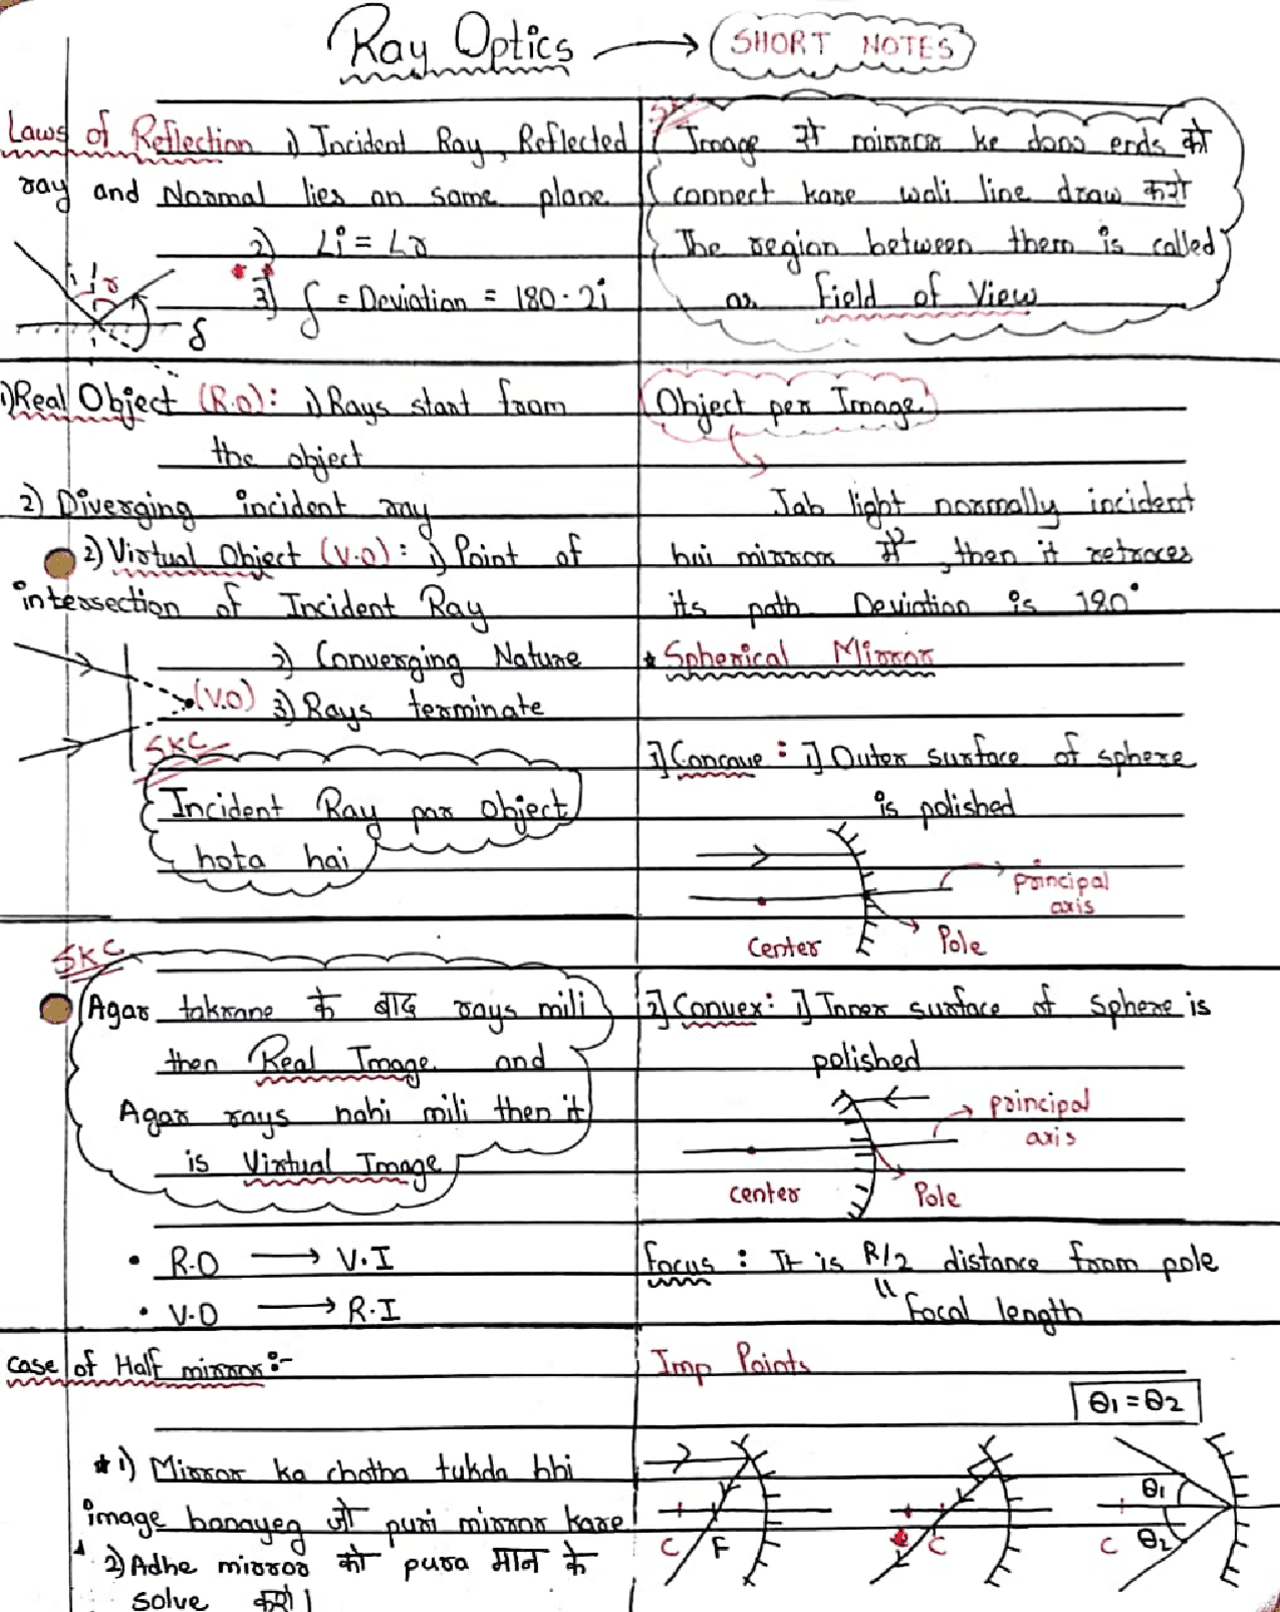 Ray Optics → SHORT NOTES
Laws of Reflection 1) Incident Ray, Reflected
ray and Normal lies on same plane
2) ∠i = ∠r
3) δ = Deviation = 180 - 2i
i r
δ
1) Real Object (R.O): 1) Rays start from
the object
2) Diverging incident ray
2) Virtual Object (V.O): 1) Point of
intersection of Incident Ray
2) Converging Nature
(V.O) 3) Rays terminate
SKC
Incident Ray par object
hota hai
SKC
Agar takrane के बाद rays mili
then Real Image and
Agar rays nahi mili then it
is Virtual Image
• R.O → V.I
• V.O → R.I
case of Half mirror :-
* 1) Mirror ka chotha tukda bhi
image banayeg जो puri mirror kare
2) Adhe mirror को pura मान के
solve करो।
Image से mirror ke dono ends को
connect kare wali line draw करो
The region between them is called
as Field of View
Object per Image
Jab light normally incident
hui mirror में, then it retraces
its path Deviation is 180°
* Spherical Mirror
1] Concave : 1] Outer surface of sphere
is polished
principal
axis
center Pole
2] Convex : 1] Inner surface of Sphere is
polished
principal
axis
center Pole
focus : It is R/2 distance from pole
"Focal length
Imp Points
θ1 = θ2
C F
C
C θ1
θ2